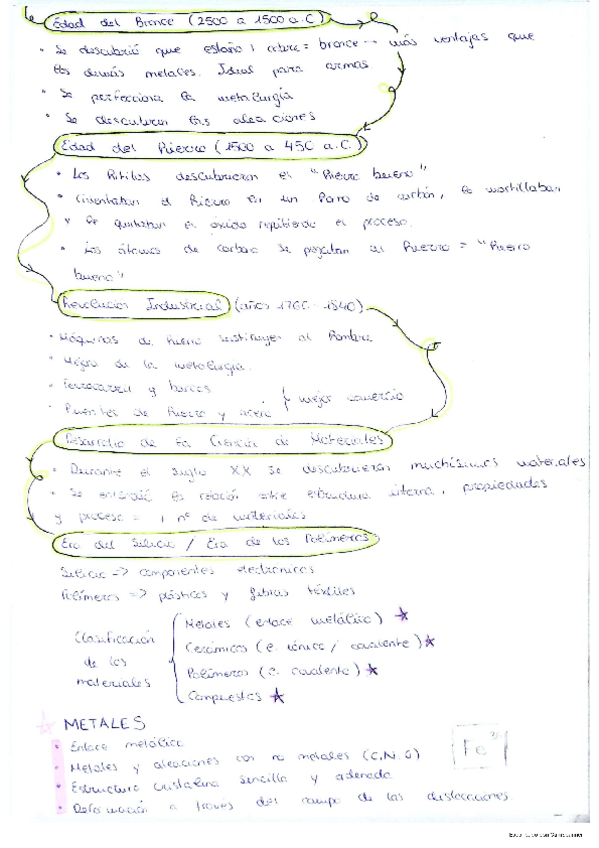 Edad del Bronce (2500 a 1500 a.C)
• Se descubrió que estaño + cobre = bronce → más ventajas que
los demás metales. Ideal para armas
• Se perfecciona la metalurgia
• Se descubren las aleaciones
Edad del Hierro (1500 a 450 a.C.)
• Los Hititas descubrieron el "Hierro bueno"
• Calentaban el Hierro en un Horno de carbón, lo martillaban
• Se quitaban el óxido repitiendo el proceso.
• Los átomos de carbono se pegaban al Hierro = "Hierro
bueno"
Revolución Industrial (años 1760 - 1840)
• Máquinas de Hierro sustituyen al Hombre
• Mejora de la metalurgia.
• Ferrocarril y barcos
• Puentes de Hierro y acero } mejor comercio
Desarrollo de la Ciencia de Materiales
• Durante el siglo XX se descubrieron muchísimos materiales
• Se entendió la relación entre estructura interna, propiedades
y proceso = ↑ nº de materiales
Era del Silicio / Era de los Polímeros
Silicio => componentes electrónicos
Polímeros => plásticos y fibras textiles
Clasificación de los materiales
Metales (enlace metálico) ☆
Cerámicos (e. iónico / covalente) ☆
Polímeros (e. covalente) ☆
Compuestos ☆
☆ METALES
• Enlace metálico
Fe
• Metales y aleaciones con no metales (C, N, O)
• Estructura cristalina sencilla y ordenada
• Deformación a través del campo de las dislocaciones.